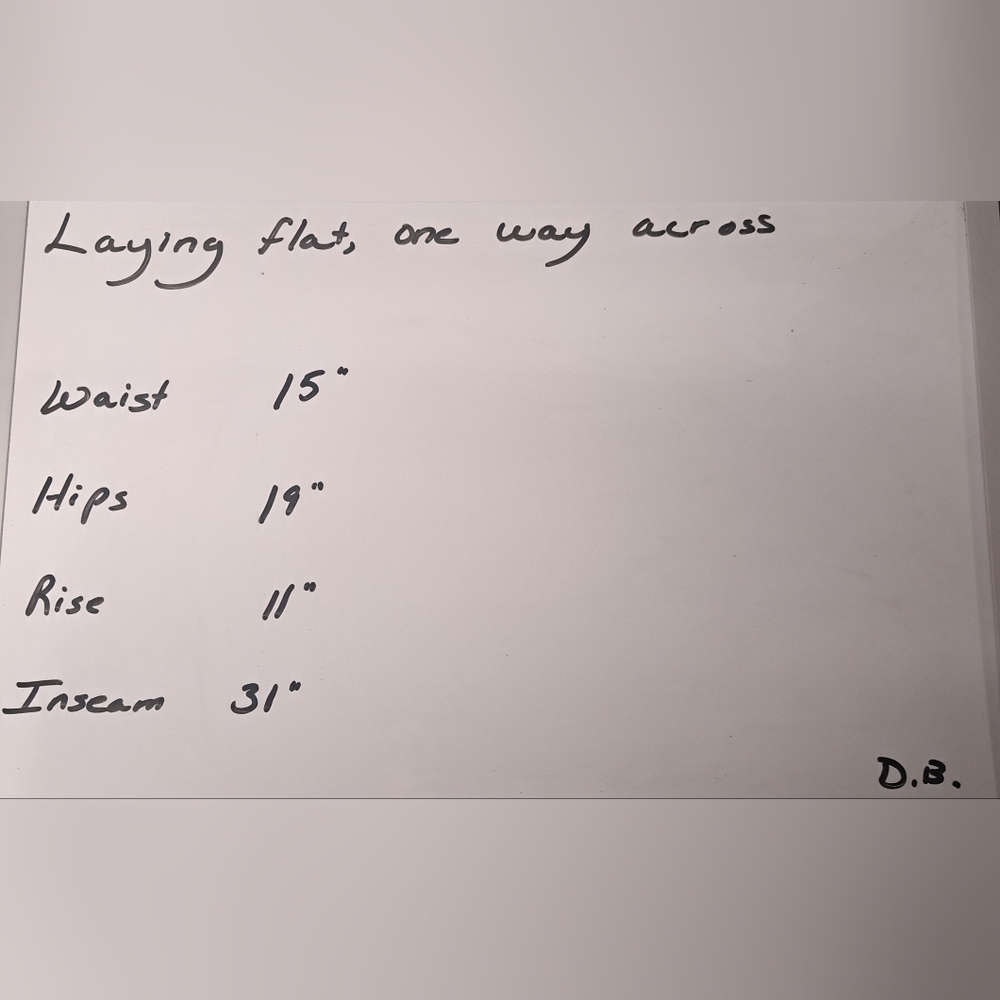 Laying flat, one way across
Waist 15"
Hips 19"
Rise 11"
Inseam 31"
D.B.